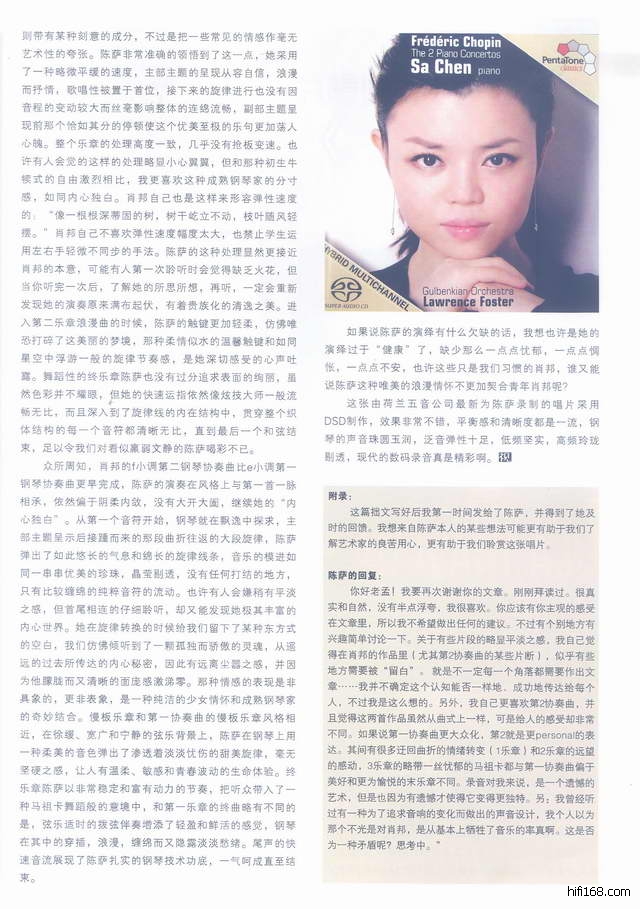 则带有某种刻意的成分，不过是把一些常见的情感作毫无
艺术性的夸张。陈萨非常准确的领悟到了这一点，她采用
了一种略微平缓的速度，主部主题的呈现从容自信，浪漫
而抒情，歌唱性被置于首位，接下来的旋律进行也没有因
音程的变动较大而丝毫影响整体的连绵流畅，副部主题呈
现前那个恰如其分的停顿使这个优美至极的乐句更加荡人
心魄。整个乐章的处理高度一致，几乎没有抢板变速。也
许有人会觉的这样的处理略显小心翼翼，但和那种初生牛
犊式的自由激烈相比，我更喜欢这种成熟钢琴家的分寸
感，如同内心独白。肖邦自己也是这样来形容弹性速度
的：“像一根根深蒂固的树，树干屹立不动，枝叶随风轻
摆。”肖邦自己不喜欢弹性速度幅度太大，也禁止学生运
用左右手轻微不同步的手法。陈萨的这种处理显然更接近
肖邦的本意，可能有人第一次聆听时会觉得缺乏火花，但
当你听完一次后，了解她的所思所想，再听，一定会重新
发现她的演奏原来满布起伏，有着贵族化的清逸之美。进
入第二乐章浪漫曲的时候，陈萨的触键更加轻柔，仿佛唯
恐打碎了这美丽的梦境，那种柔情似水的温馨触键和如同
星空中浮游一般的旋律节奏感，是她深切感受的心声吐
露。舞蹈性的终乐章陈萨也没有过分追求表面的绚丽，虽
然色彩并不耀眼，但她的快速运指依然像炫技大师一般流
畅无比，而且深入到了旋律线的内在结构中，贯穿整个织
体结构的每一个音符都清晰无比，直到最后一个和弦结
束，足以令我们对看似羸弱文静的陈萨喝彩不已。
众所周知，肖邦的f小调第二钢琴协奏曲比e小调第一
钢琴协奏曲更早完成，陈萨的演奏在风格上与第一首一脉
相承，依然偏于阴柔内敛，没有大开大阖，继续她的“内
心独白”。从第一个音符开始，钢琴就在飘逸中探求，主
部主题呈示后接踵而来的那段曲折往返的大段旋律，陈萨
弹出了如此悠长的气息和绵长的旋律线条，音乐的模进如
同一串串优美的珍珠，晶莹剔透，没有任何打结的地方，
只有比较缠绵的纯粹音符的流动。也许有人会嫌稍有平淡
之感，但首尾相连的仔细聆听，却又能发现她极其丰富的
内心世界。她在旋律转换的时候给我们留下了某种东方式
的空白，我们仿佛倾听到了一颗孤独而骄傲的灵魂，从遥
远的过去所传达的内心秘密，因此有远离尘嚣之感，并因
为他朦胧而又清晰的面庞感激涕零。那种情感的表现是非
具象的，更非表象，是一种纯洁的少女情怀和成熟钢琴家
的奇妙结合。慢板乐章和第一协奏曲的慢板乐章风格相
近，在徐缓、宽广和宁静的弦乐背景上，陈萨在钢琴上用
一种柔美的音色弹出了渗透着淡淡忧伤的甜美旋律，毫无
坚硬之感，让人有温柔、敏感和青春波动的生命体验。终
乐章陈萨以非常稳定和富有动力的节奏，把听众带入了一
种马祖卡舞蹈般的意境中，和第一乐章的终曲略有不同的
是，弦乐适时的拨弦伴奏增添了轻盈和鲜活的感觉，钢琴
在其中的穿插，浪漫，缠绵而又隐露淡淡愁绪。尾声的快
速音流展现了陈萨扎实的钢琴技术功底，一气呵成直至结
束。
Frédéric Chopin
The 2 Piano Concertos
Sa Chen piano
PentaTone
classics
HYBRID MULTICHANNEL
SUPER AUDIO CD
Gulbenkian Orchestra
Lawrence Foster
如果说陈萨的演绎有什么欠缺的话，我想也许是她的
演绎过于“健康”了，缺少那么一点点忧郁，一点点惆
怅，一点点不安，也许这些只是我们习惯的肖邦，谁又能
说陈萨这种唯美的浪漫情怀不更加契合青年肖邦呢？
这张由荷兰五音公司最新为陈萨录制的唱片采用
DSD制作，效果非常不错，平衡感和清晰度都是一流，钢
琴的声音珠圆玉润，泛音弹性十足，低频坚实，高频玲珑
剔透，现代的数码录音真是精彩啊。
附录：
这篇拙文写好后我第一时间发给了陈萨，并得到了她及
时的回馈。我想来自陈萨本人的某些想法可能更有助于我们了
解艺术家的良苦用心，更有助于我们聆赏这张唱片。
陈萨的回复：
“你好老孟！我要再次谢谢你的文章。刚刚拜读过。很真
实和自然，没有半点浮夸，我很喜欢。你应该有你主观的感受
在文章里，所以我不希望做出任何的建议。不过有个别地方有
兴趣简单讨论一下。关于有些片段的略显平淡之感，我自己觉
得在肖邦的作品里（尤其第2协奏曲的某些片断），似乎有些
地方需要被“留白”。就是不一定每一个角落都需要作出文
章……我并不确定这个认知能否一样地、成功地传达给每个
人，不过我是这么想的。另外，我自己更喜欢第2协奏曲，并
且觉得这两首作品虽然从曲式上一样，可是给人的感受却非常
不同。如果说第一协奏曲更大众化，第2就是更personal的表
达。其间有很多迂回曲折的情绪转变（1乐章）和2乐章的远望
的感动，3乐章的略带一丝忧郁的马祖卡都与第一协奏曲偏于
美好和更为愉悦的末乐章不同。录音对我来说，是一个遗憾的
艺术，但是也因为有遗憾才使得它变得更独特。另：我曾经听
过有一种为了追求音响的变化而做出的声音设计，我个人以为
那个不光是对肖邦，是从基本上牺牲了音乐的率真啊。这是否
为一种矛盾呢？思考中。”
hifi168.com